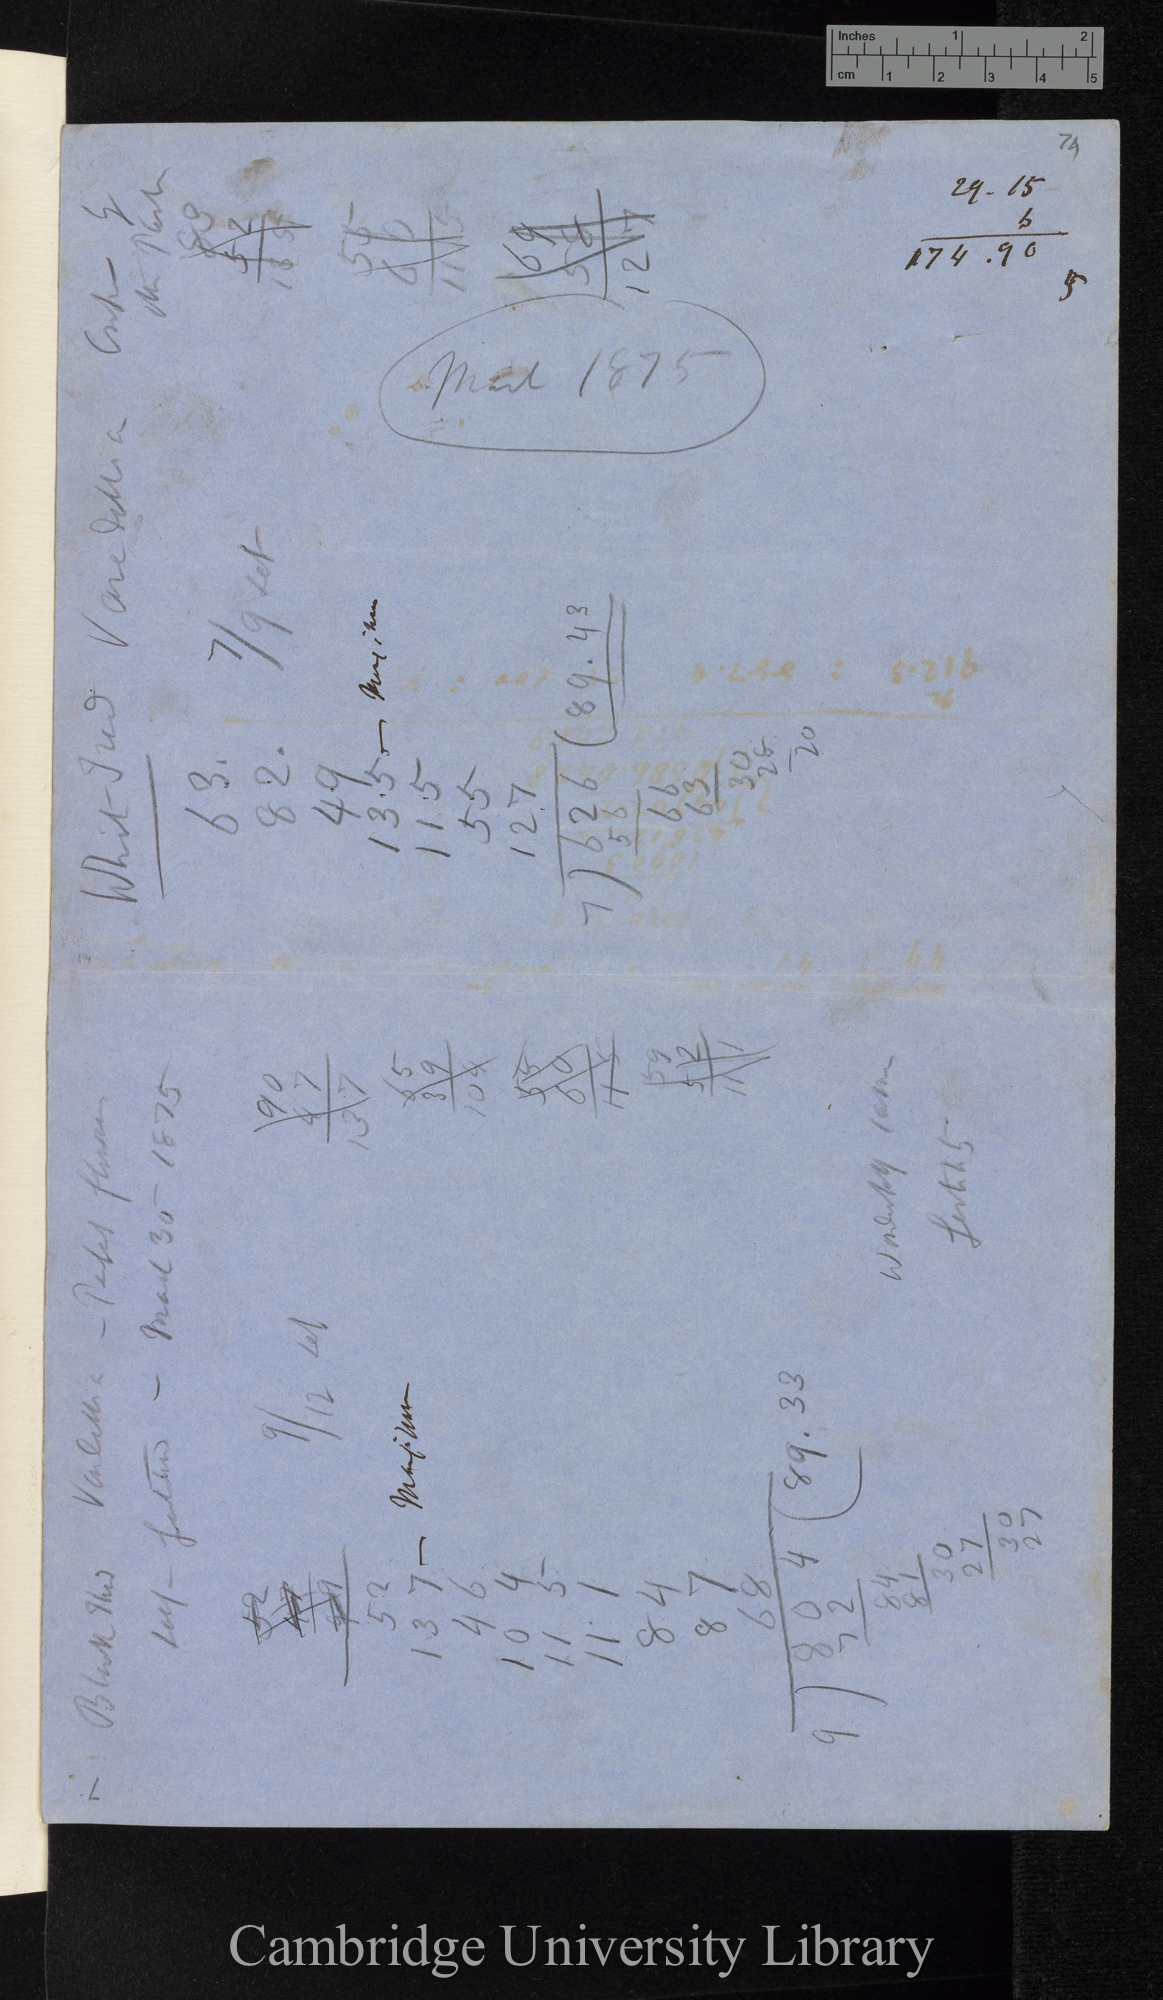 Inches 1 2
cm 1 2 3 4 5
79
29.15
6
174.90
5
Black thread Vandellia – Perfect flowers
self-fertilised – March 30 1875
9/12 set
52
137 – Maximum
46
104
115
111
84
87
68
9)804(89.33
72
84
81
30
27
30
27
90
47
137
65
39
104
55
60
115
59
52
111
Wonderfully
fertile
White thread Vandellia Crossed by
7/9 set
63.
82.
49
135 – Maximum
115
55
127
7)626(89.43
56
66
63
30
28
20
83
52
135
55
60
115
69
58
127
March 1875
Cambridge University Library